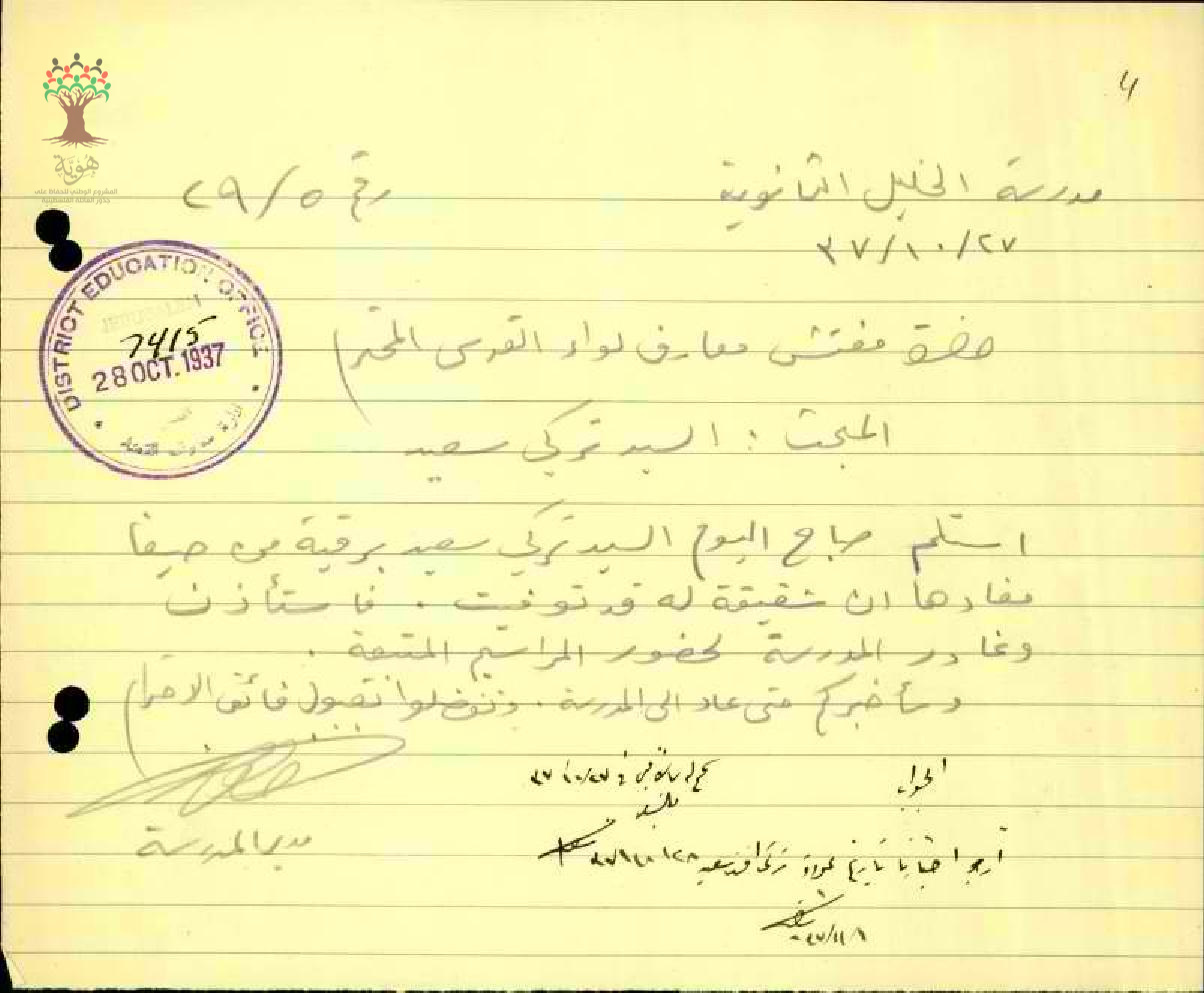 4
هوية
المشروع الوطني للحفاظ على
جذور العائلة الفلسطينية
مدرسة الخليل الثانوية
رقم ٢٩/٥
٣٧/١٠/٢٧
DISTRICT EDUCATION OFFICE
JERUSALEM
7415
28 OCT. 1937
حضرة مفتش معارف لواء القدس المحترم
المبحث : السيد تركي سعيد
استلم صباح اليوم السيد تركي سعيد برقية من حيفا
مفادها ان شقيقة له قد توفيت . فاستأذن
وغادر المدرسة لحضور المراسيم المتبعة .
وسأخبركم متى عاد الى المدرسة . وتفضلوا بقبول فائق الاحترام
مدير المدرسة
الجواب
٣٧/١٠/٢٧
أرجو اخبارنا بتاريخ عودة تركي افندي سعيد
٣٧/١٠/٢٨
٣٧/١١/١